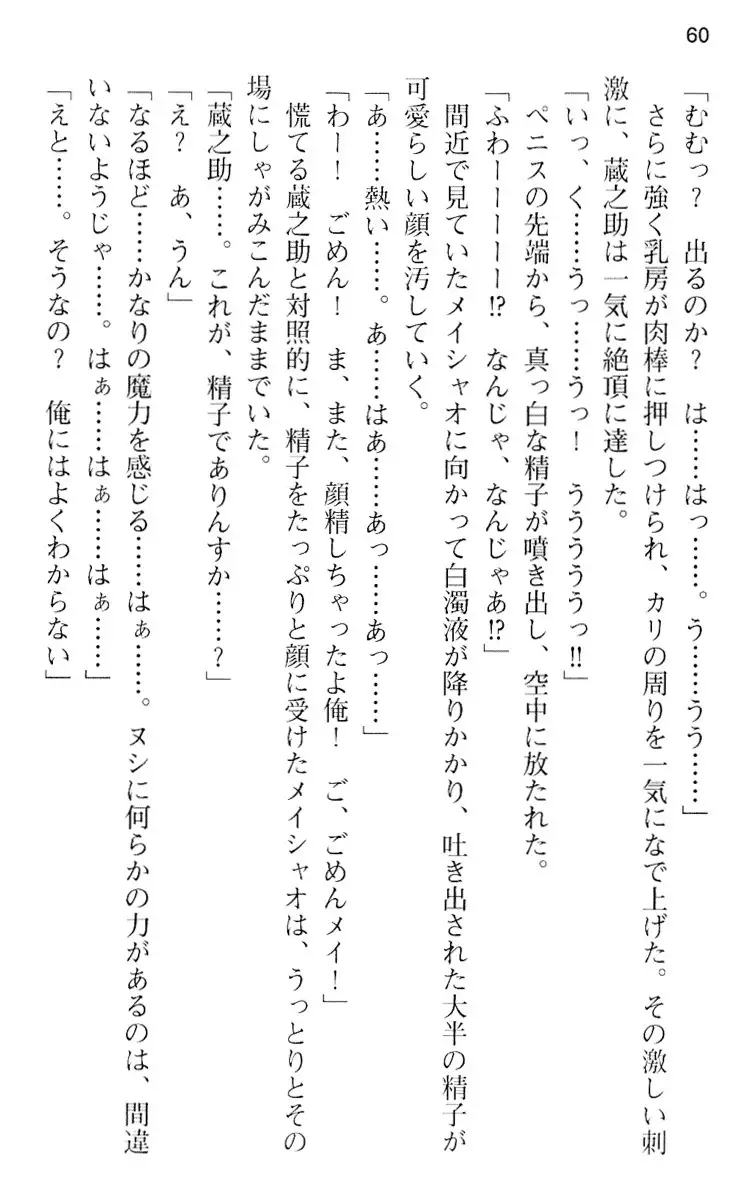 60
「むむっ？　出るのか？　は……はっ……。う……うう……」
さらに強く乳房が肉棒に押しつけられ、カリの周りを一気になで上げた。その激しい刺
激に、蔵之助は一気に絶頂に達した。
「いっ、く……うっ……うっ！　うううううっ!!」
ペニスの先端から、真っ白な精子が噴き出し、空中に放たれた。
「ふわーーーーー!?　なんじゃ、なんじゃあ!?」
間近で見ていたメイシャオに向かって白濁液が降りかかり、吐き出された大半の精子が
可愛らしい顔を汚していく。
「あ……熱い……。あ……はあ……あっ……あっ……」
「わー！　ごめん！　ま、また、顔精しちゃったよ俺！　ご、ごめんメイ！」
慌てる蔵之助と対照的に、精子をたっぷりと顔に受けたメイシャオは、うっとりとその
場にしゃがみこんだままでいた。
「蔵之助……。これが、精子でありんすか……？」
「え？　あ、うん」
「なるほど……かなりの魔力を感じる……はぁ……。ヌシに何らかの力があるのは、間違
いないようじゃ……。はぁ……はぁ……はぁ……」
「えと……。そうなの？　俺にはよくわからない」